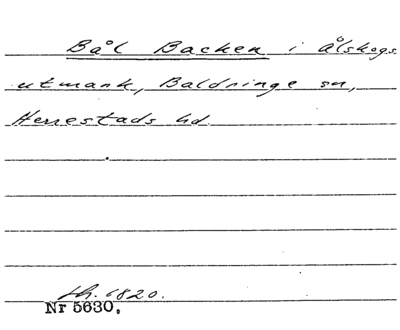 Bål Backen i Ålskogs
utmark, Baldringe sn,
Herrestads hd
1820.
Nr 5630.